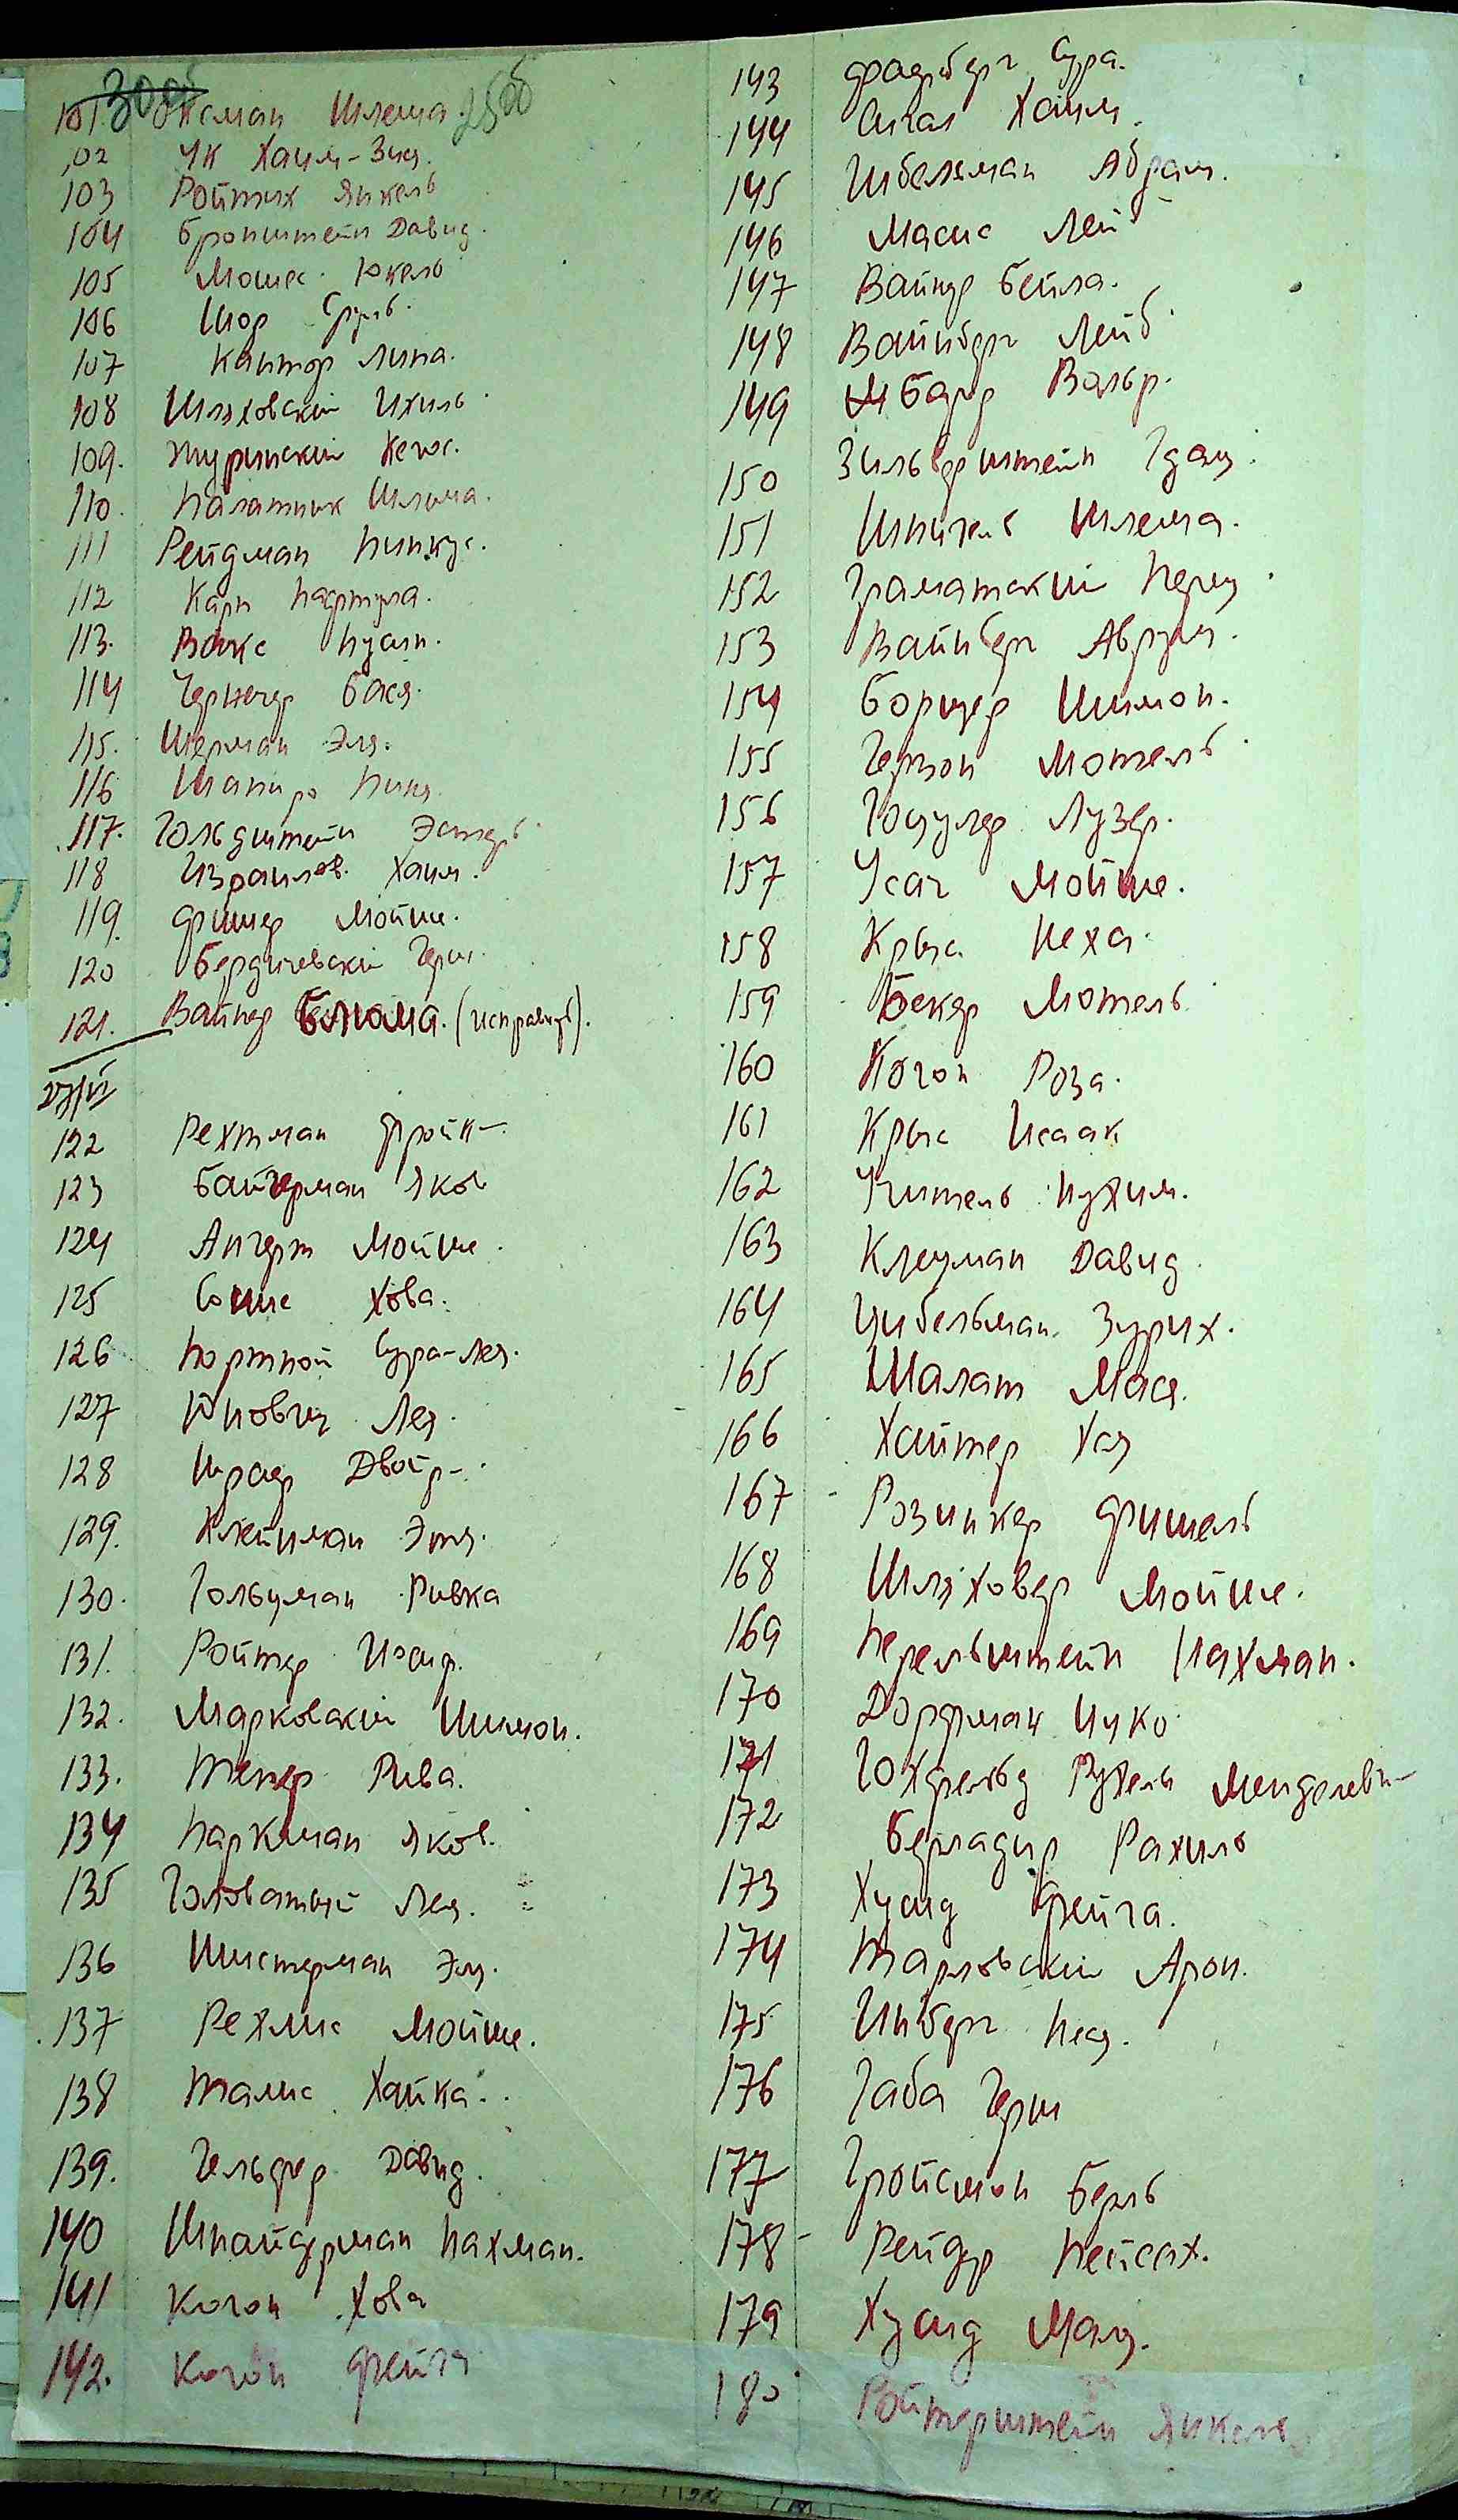 101. Оксман Шлема.
102 Ук Хаим-Зис.
103 Ройтих Янкель
104 Бронштейн Давид.
105 Мошес Юкель
106 Шор Сруль.
107 Кантор Липа.
108 Шляховский Ихиль.
109. Журинский
110. Палатник Шлема.
111 Рейдман Пинкус.
112 Карп
113. Вакс
114 Бася.
115. Шерман Эля.
116 Шапиро Пиня.
117. Гольдштейн Эстерь.
118 Израилов. Хаим.
119. Фишер Мойше.
120 Бердичевский Герш.
121. Вайнер Блюма. (исправить).
27/VI
122 Рехтман Фройк-
123 Байгерман Яков
124 Ангерт Мойше.
125 Хова.
126 Портной Сура-Лея.
127 Юнович Лея.
128 Шраер Двойр-.
129. Клейман Этя.
130. Гольцман Ривка
131. Ройтер Иосиф.
132. Марковский Шимон.
133. Текер Рива.
134 Паркман Яков.
135 Головатый Лея.
136 Шистерман Эля.
137 Рехлис Мойше.
138 Талис Хайка.
139. Гельфер Давид.
140 Шнайдерман Нахман.
141 Коган Хова
142. Коган Фейга
143 Файнберг Сура.
144 Сигал Хаим.
145 Цибельман Абрам.
146 Масис Лей
147 Вайнер Бейла.
148 Вайнберг Лейб
149 Вольф.
150 Зильберштейн
151 Шпигель Шлема.
152 Граматский Перец.
153 Вайнберг Аврум.
154 Борщер Шимон.
155 Герзон Мотель.
156 Лузер.
157 Усач Мойше.
158 Крыс Неха.
159 Бекер Мотель
160 Коган Роза.
161 Крыс Исаак
162 Учитель Нухим.
163 Клецман Давид
164 Цибельман Зурих.
165 Шалат Мася.
166 Хаймер Хая
167 Розинкер Фишель
168 Шляховер Мойше.
169 Перельштейн Нахман.
170 Дорфман Ицко
171 Рухель Менделев-
172 Берладир Рахиль
173 Хусид Фейга.
174 Тарловский Арон.
175 Инберг Неся.
176 Габа Герш
177 Гройсман Берль
178 Рейдер Пейсах.
179 Хусид Маня.
180 Ройтерштейн Янкель